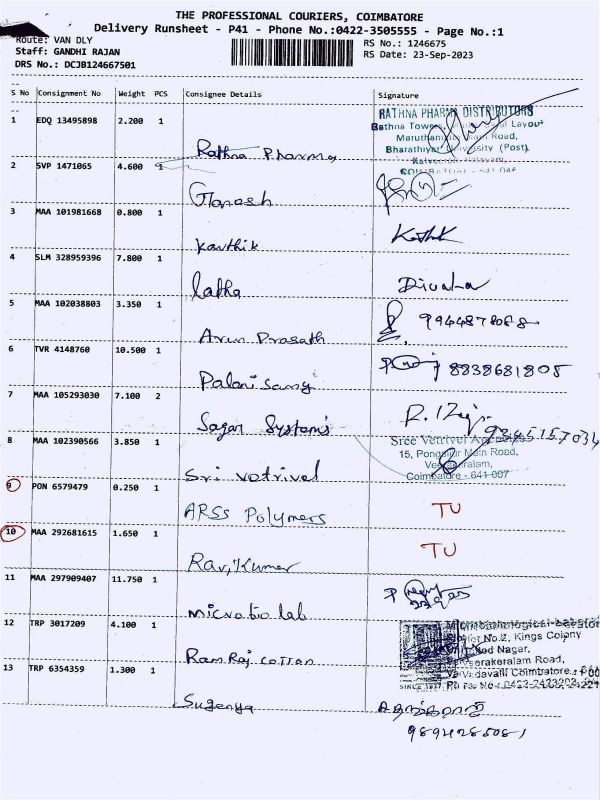 THE PROFESSIONAL COURIERS, COIMBATORE
Delivery Runsheet - P41 - Phone No.:0422-3505555 - Page No.:1
Route: VAN DLY
Staff: GANDHI RAJAN
DRS No.: DCJB124667501
RS No.: 1246675
RS Date: 23-Sep-2023
S No Consignment No Weight PCS Consignee Details Signature
1 EDQ 13495898 2.200 1
Rathna Pharma
RATHNA PHARMA DISTRIBUTORS
Rathna Towers, Layout
Maruthamalai Main Road,
Bharathiyar University (Post),
COIMBATORE - 641 046
2 SVP 1471065 4.600 1
Ganesh
3 MAA 101981668 0.800 1
Karthik
4 SLM 328959396 7.800 1
latha
Divaka
5 MAA 102038803 3.350 1
Arun Prasath
9944878088
6 TVR 4148760 10.500 1
Palani Samy
8838681805
7 MAA 105293030 7.100 2
Sagar Systems
9345157034
8 MAA 102390566 3.850 1
Sri vetrivel
Sree Vetrivel Agencies
15, Pongaliur Main Road,
Coimbatore - 641 007
9 PON 6579479 0.250 1
ARSS Polymers
TU
10 MAA 292681615 1.650 1
Ravi Kumar
TU
11 MAA 297909407 11.750 1
microbio lab
12 TRP 3017209 4.100 1
Ramraj cotton
No.2, Kings Colony
Nagar,
Veerakeralam Road,
Vadavalli Coimbatore.
13 TRP 6354359 1.300 1
Sugenya
9894285081